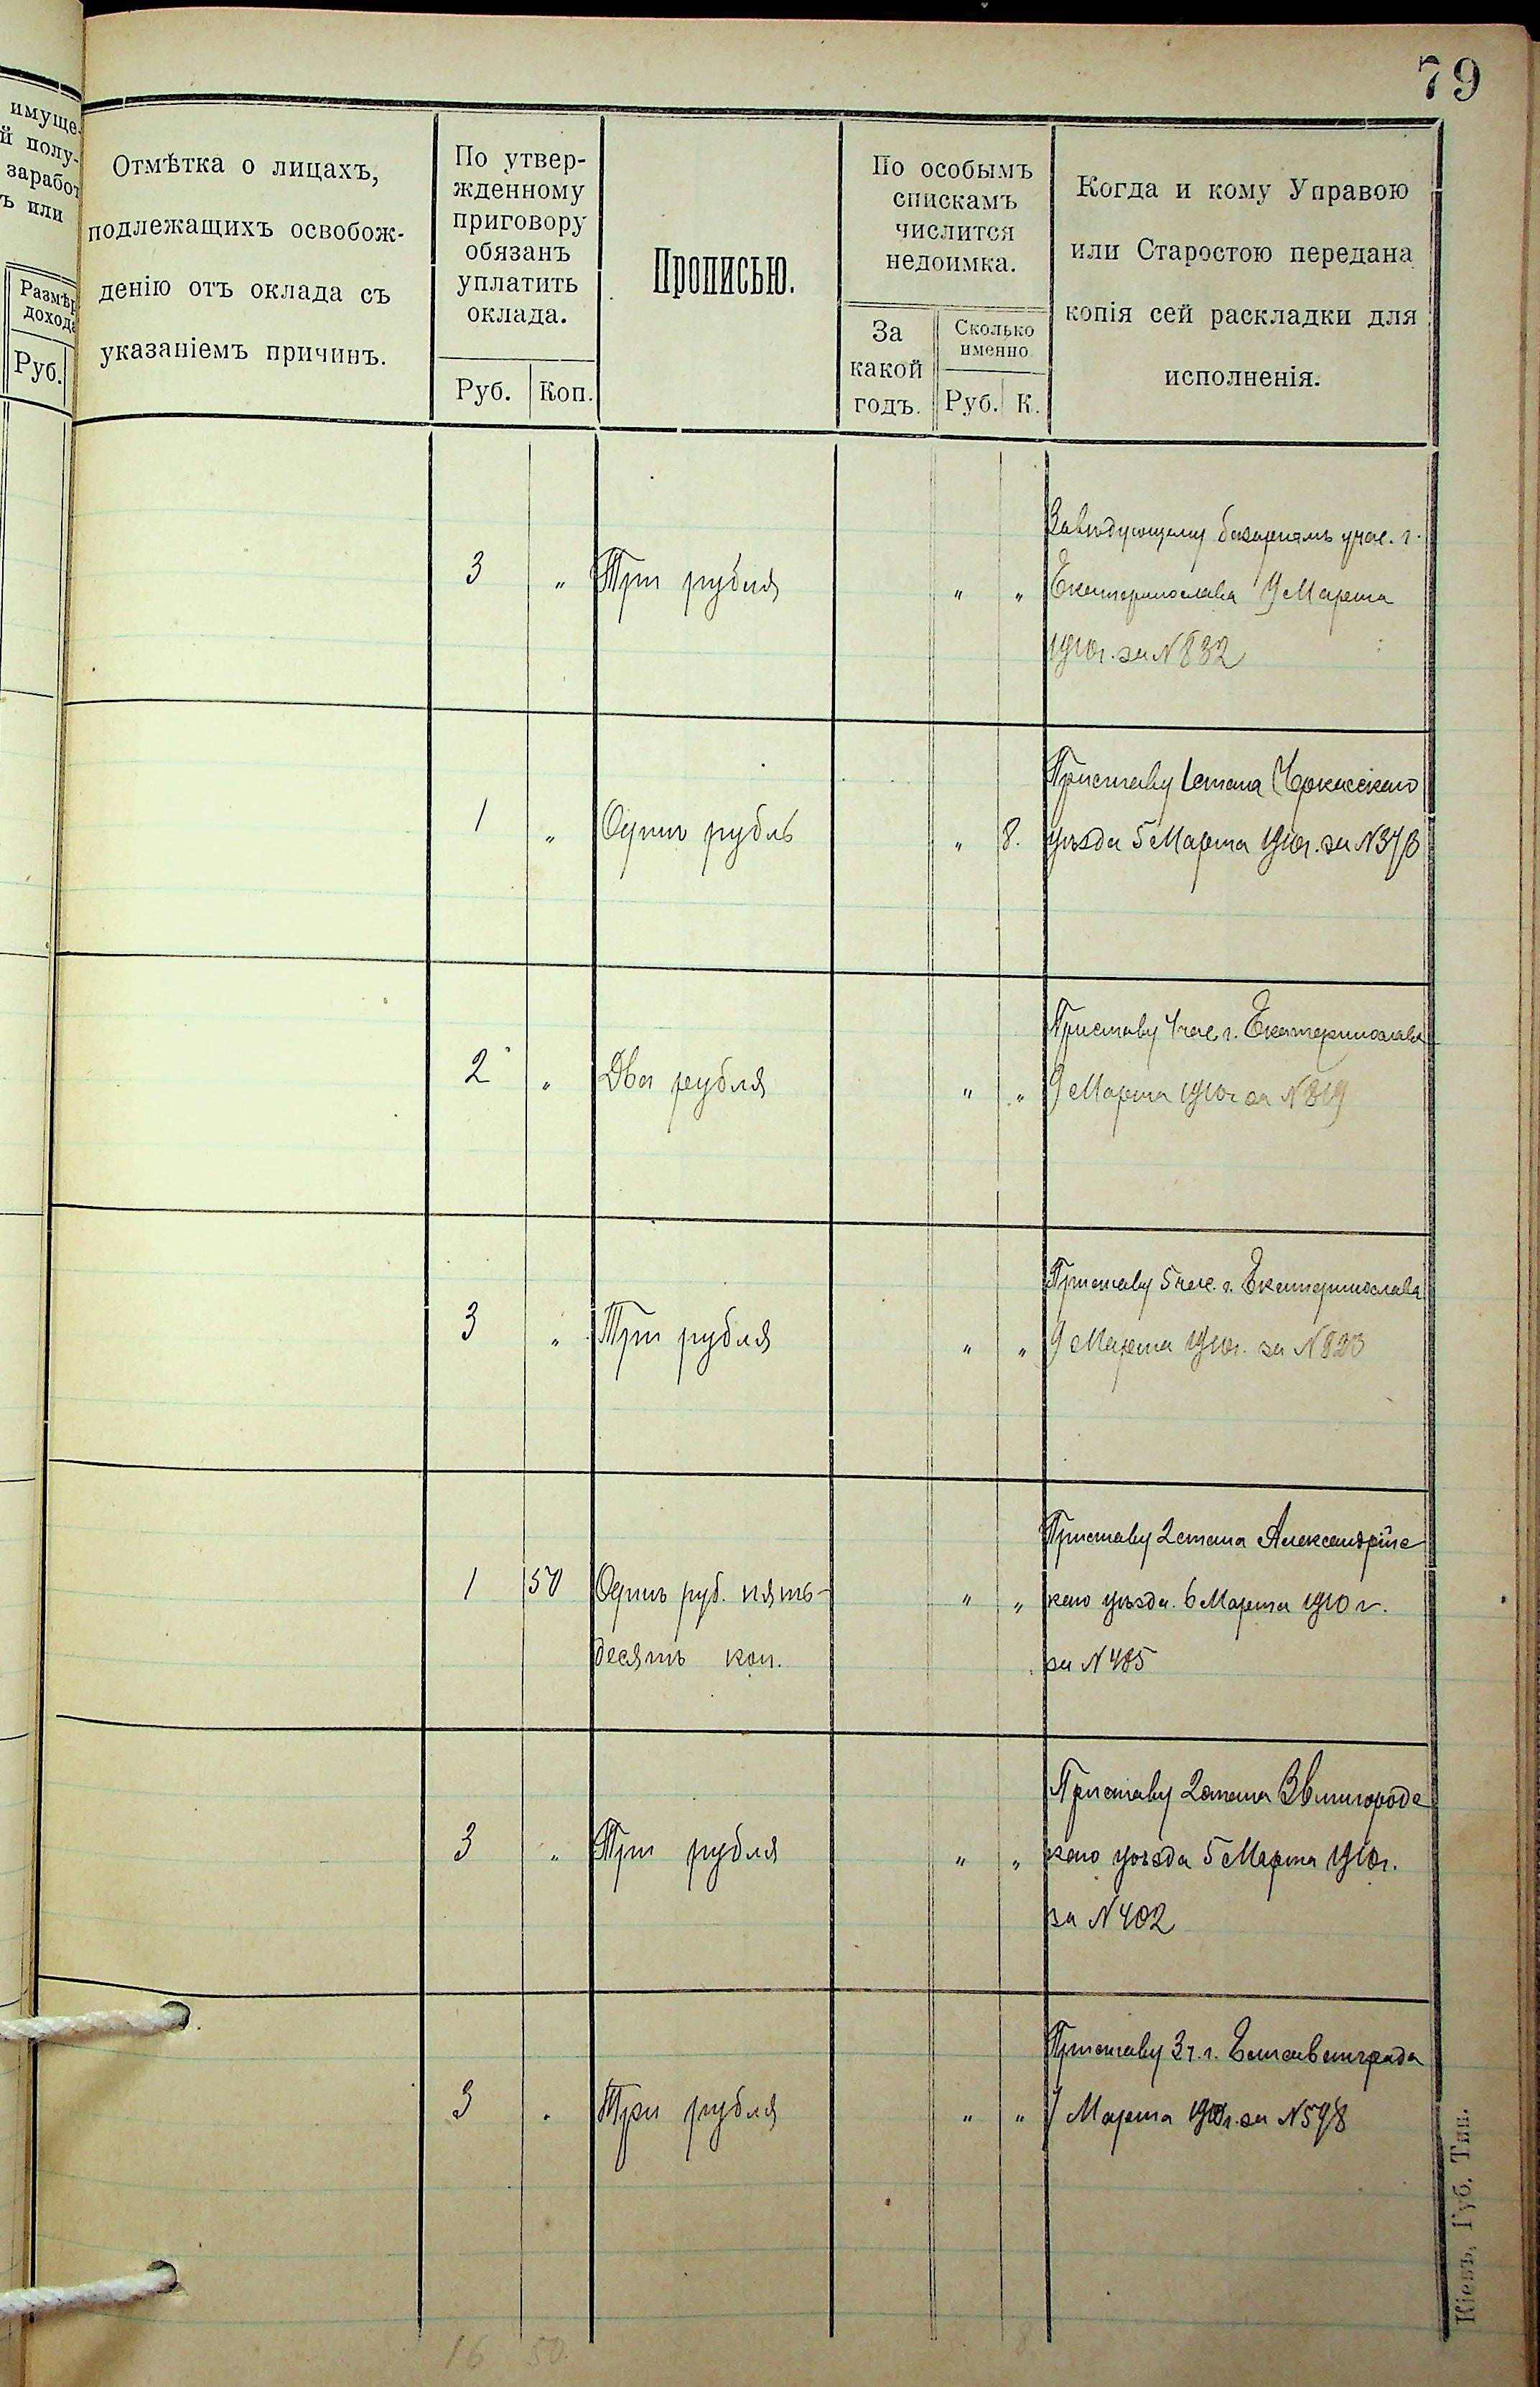 79
имуще-
й полу-
заработ
ъ или
Размѣр
дохода
Руб.
Отмѣтка о лицахъ,
подлежащихъ освобож-
денію отъ оклада съ
указаніемъ причинъ.
По утвер-
жденному
приговору
обязанъ
уплатить
оклада.
Руб. Коп.
Прописью.
По особымъ
спискамъ
числится
недоимка.
За
какой
годъ.
Сколько
именно
Руб. К.
Когда и кому Управою
или Старостою передана
копія сей раскладки для
исполненія.
Завѣдующему базарнымъ учас. г.
3 " Три рубля " " Екатеринослава 9 Марта
1910 г. за N 832
Приставу 1 стана Черкасскаго
1 " Одинъ рубль " 8. уѣзда 5 Марта 1910 г. за N 373
Приставу 4 час. г. Екатеринослава
2 " Два рубля " " 9 Марта 1910 г за N 819
Приставу 5 час. г. Екатеринослава
3 " Три рубля " " 9 Марта 1910 г. за N 823
Приставу 2 стана Александрійс
1 50 Одинъ руб. пять- " " каго уѣзда. 6 Марта 1910 г.
десятъ коп. за N 485
Приставу 2 стана Звенигородс
3 " Три рубля " " каго уѣзда 5 Марта 1910 г.
за N 402
Приставу 3 ч. г. Елисаветграда
3 " Три рубля " " 7 Марта 1910 г. за N 598
16 50. 8
Кіевъ, Губ. Тип.